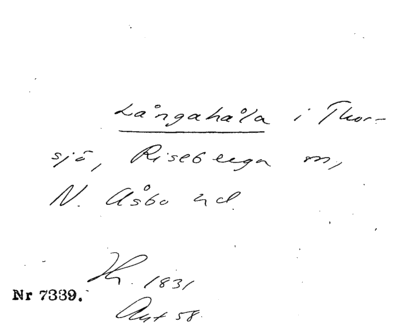 Långahåla i Thor-
sjö, Riseberga sn,
N. Åsbo hd.
1831
Nr 7339.
Akt 58.